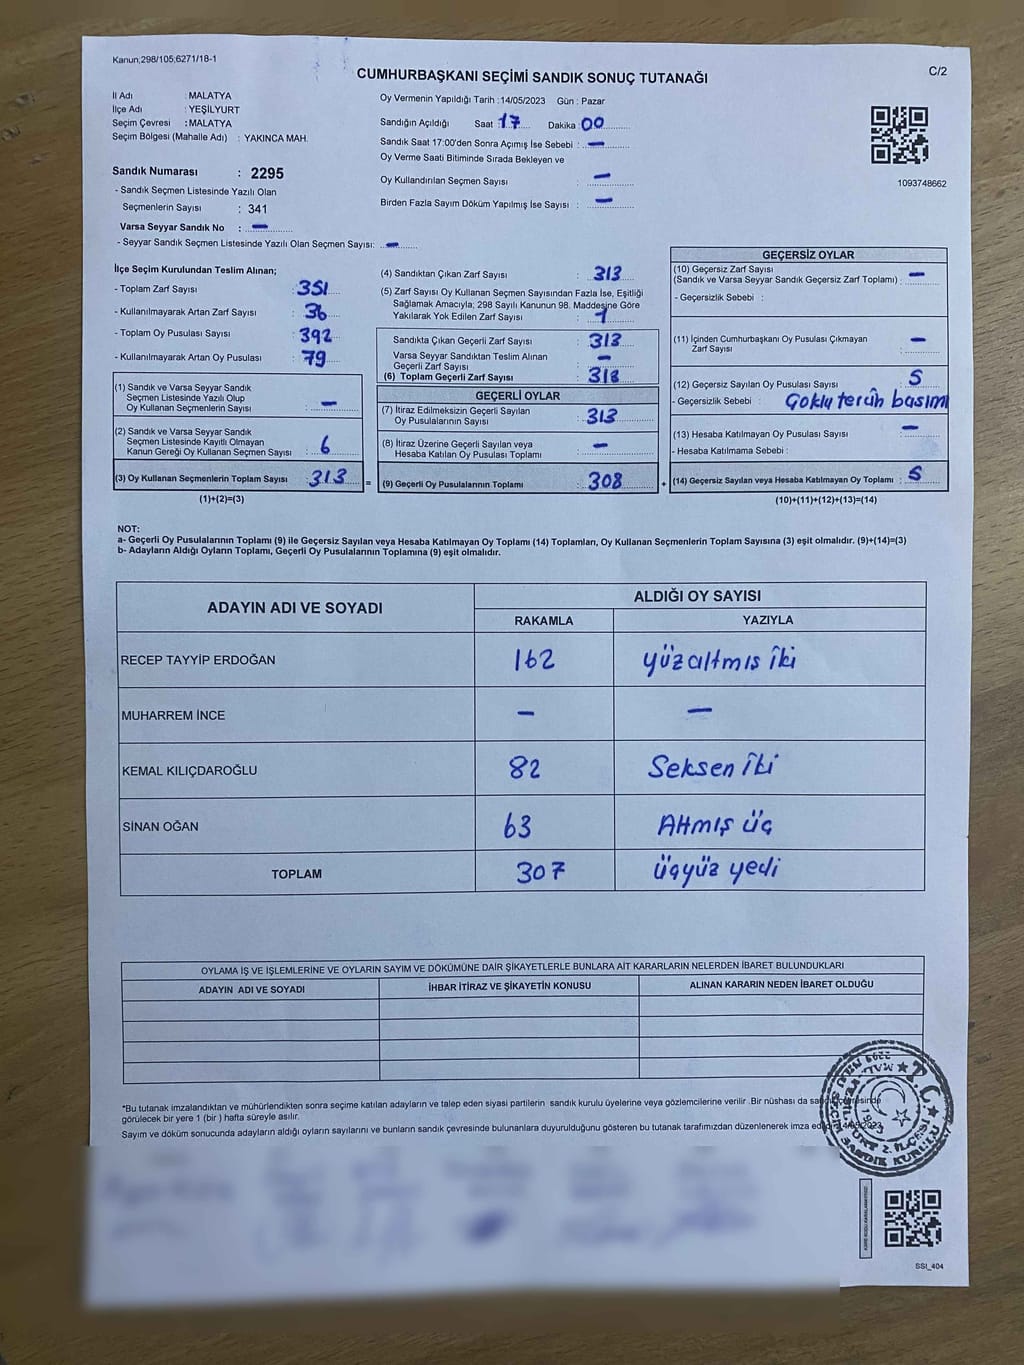 Kanun;298/105;6271/18-1
CUMHURBAŞKANI SEÇİMİ SANDIK SONUÇ TUTANAĞI
C/2
İl Adı : MALATYA
İlçe Adı : YEŞİLYURT
Seçim Çevresi : MALATYA
Seçim Bölgesi (Mahalle Adı) : YAKINCA MAH.
Oy Vermenin Yapıldığı Tarih :14/05/2023 Gün : Pazar
Sandığın Açıldığı Saat : 17 Dakika : 00
Sandık Saat 17:00'den Sonra Açımış İse Sebebi : —
Oy Verme Saati Bitiminde Sırada Bekleyen ve
Oy Kullandırılan Seçmen Sayısı : —
Birden Fazla Sayım Döküm Yapılmış İse Sayısı : —
1093748662
Sandık Numarası : 2295
- Sandık Seçmen Listesinde Yazılı Olan
Seçmenlerin Sayısı : 341
Varsa Seyyar Sandık No : —
- Seyyar Sandık Seçmen Listesinde Yazılı Olan Seçmen Sayısı: —
İlçe Seçim Kurulundan Teslim Alınan;
- Toplam Zarf Sayısı : 351
- Kullanılmayarak Artan Zarf Sayısı : 36
- Toplam Oy Pusulası Sayısı : 392
- Kullanılmayarak Artan Oy Pusulası : 79
(1) Sandık ve Varsa Seyyar Sandık
Seçmen Listesinde Yazılı Olup
Oy Kullanan Seçmenlerin Sayısı : —
(2) Sandık ve Varsa Seyyar Sandık
Seçmen Listesinde Kayıtlı Olmayan
Kanun Gereği Oy Kullanan Seçmen Sayısı : 6
(3) Oy Kullanan Seçmenlerin Toplam Sayısı : 313
(1)+(2)=(3)
(4) Sandıktan Çıkan Zarf Sayısı : 313
(5) Zarf Sayısı Oy Kullanan Seçmen Sayısından Fazla İse, Eşitliği
Sağlamak Amacıyla; 298 Sayılı Kanunun 98. Maddesine Göre
Yakılarak Yok Edilen Zarf Sayısı :
Sandıkta Çıkan Geçerli Zarf Sayısı : 313
Varsa Seyyar Sandıktan Teslim Alınan
Geçerli Zarf Sayısı : —
(6) Toplam Geçerli Zarf Sayısı : 313
GEÇERLİ OYLAR
(7) İtiraz Edilmeksizin Geçerli Sayılan
Oy Pusulalarının Sayısı : 313
(8) İtiraz Üzerine Geçerli Sayılan veya
Hesaba Katılan Oy Pusulası Toplamı : —
= (9) Geçerli Oy Pusulalarının Toplamı : 308
GEÇERSİZ OYLAR
(10) Geçersiz Zarf Sayısı
(Sandık ve Varsa Seyyar Sandık Geçersiz Zarf Toplamı) : —
- Geçersizlik Sebebi :
(11) İçinden Cumhurbaşkanı Oy Pusulası Çıkmayan
Zarf Sayısı : —
(12) Geçersiz Sayılan Oy Pusulası Sayısı : 5
- Geçersizlik Sebebi : Çoklu tercih basımı
(13) Hesaba Katılmayan Oy Pusulası Sayısı : —
- Hesaba Katılmama Sebebi :
+ (14) Geçersiz Sayılan veya Hesaba Katılmayan Oy Toplamı : 5
(10)+(11)+(12)+(13)=(14)
NOT:
a- Geçerli Oy Pusulalarının Toplamı (9) ile Geçersiz Sayılan veya Hesaba Katılmayan Oy Toplamı (14) Toplamları, Oy Kullanan Seçmenlerin Toplam Sayısına (3) eşit olmalıdır. (9)+(14)=(3)
b- Adayların Aldığı Oyların Toplamı, Geçerli Oy Pusulalarının Toplamına (9) eşit olmalıdır.
ADAYIN ADI VE SOYADI
ALDIĞI OY SAYISI
RAKAMLA YAZIYLA
RECEP TAYYİP ERDOĞAN 162 yüzaltmış iki
MUHARREM İNCE — —
KEMAL KILIÇDAROĞLU 82 Seksen iki
SİNAN OĞAN 63 Altmış üç
TOPLAM 307 üçyüz yedi
OYLAMA İŞ VE İŞLEMLERİNE VE OYLARIN SAYIM VE DÖKÜMÜNE DAİR ŞİKAYETLERLE BUNLARA AİT KARARLARIN NELERDEN İBARET BULUNDUKLARI
ADAYIN ADI VE SOYADI İHBAR İTİRAZ VE ŞİKAYETİN KONUSU ALINAN KARARIN NEDEN İBARET OLDUĞU
*Bu tutanak imzalandıktan ve mühürlendikten sonra seçime katılan adayların ve talep eden siyasi partilerin sandık kurulu üyelerine veya gözlemcilerine verilir .Bir nüshası da sandık çevresinde
görülecek bir yere 1 (bir ) hafta süreyle asılır.
Sayım ve döküm sonucunda adayların aldığı oyların sayılarını ve bunların sandık çevresinde bulunanlara duyurulduğunu gösteren bu tutanak tarafımızdan düzenlenerek imza edildi. 14/05/2023
T.C.
SANDIK KURULU
SSI_404